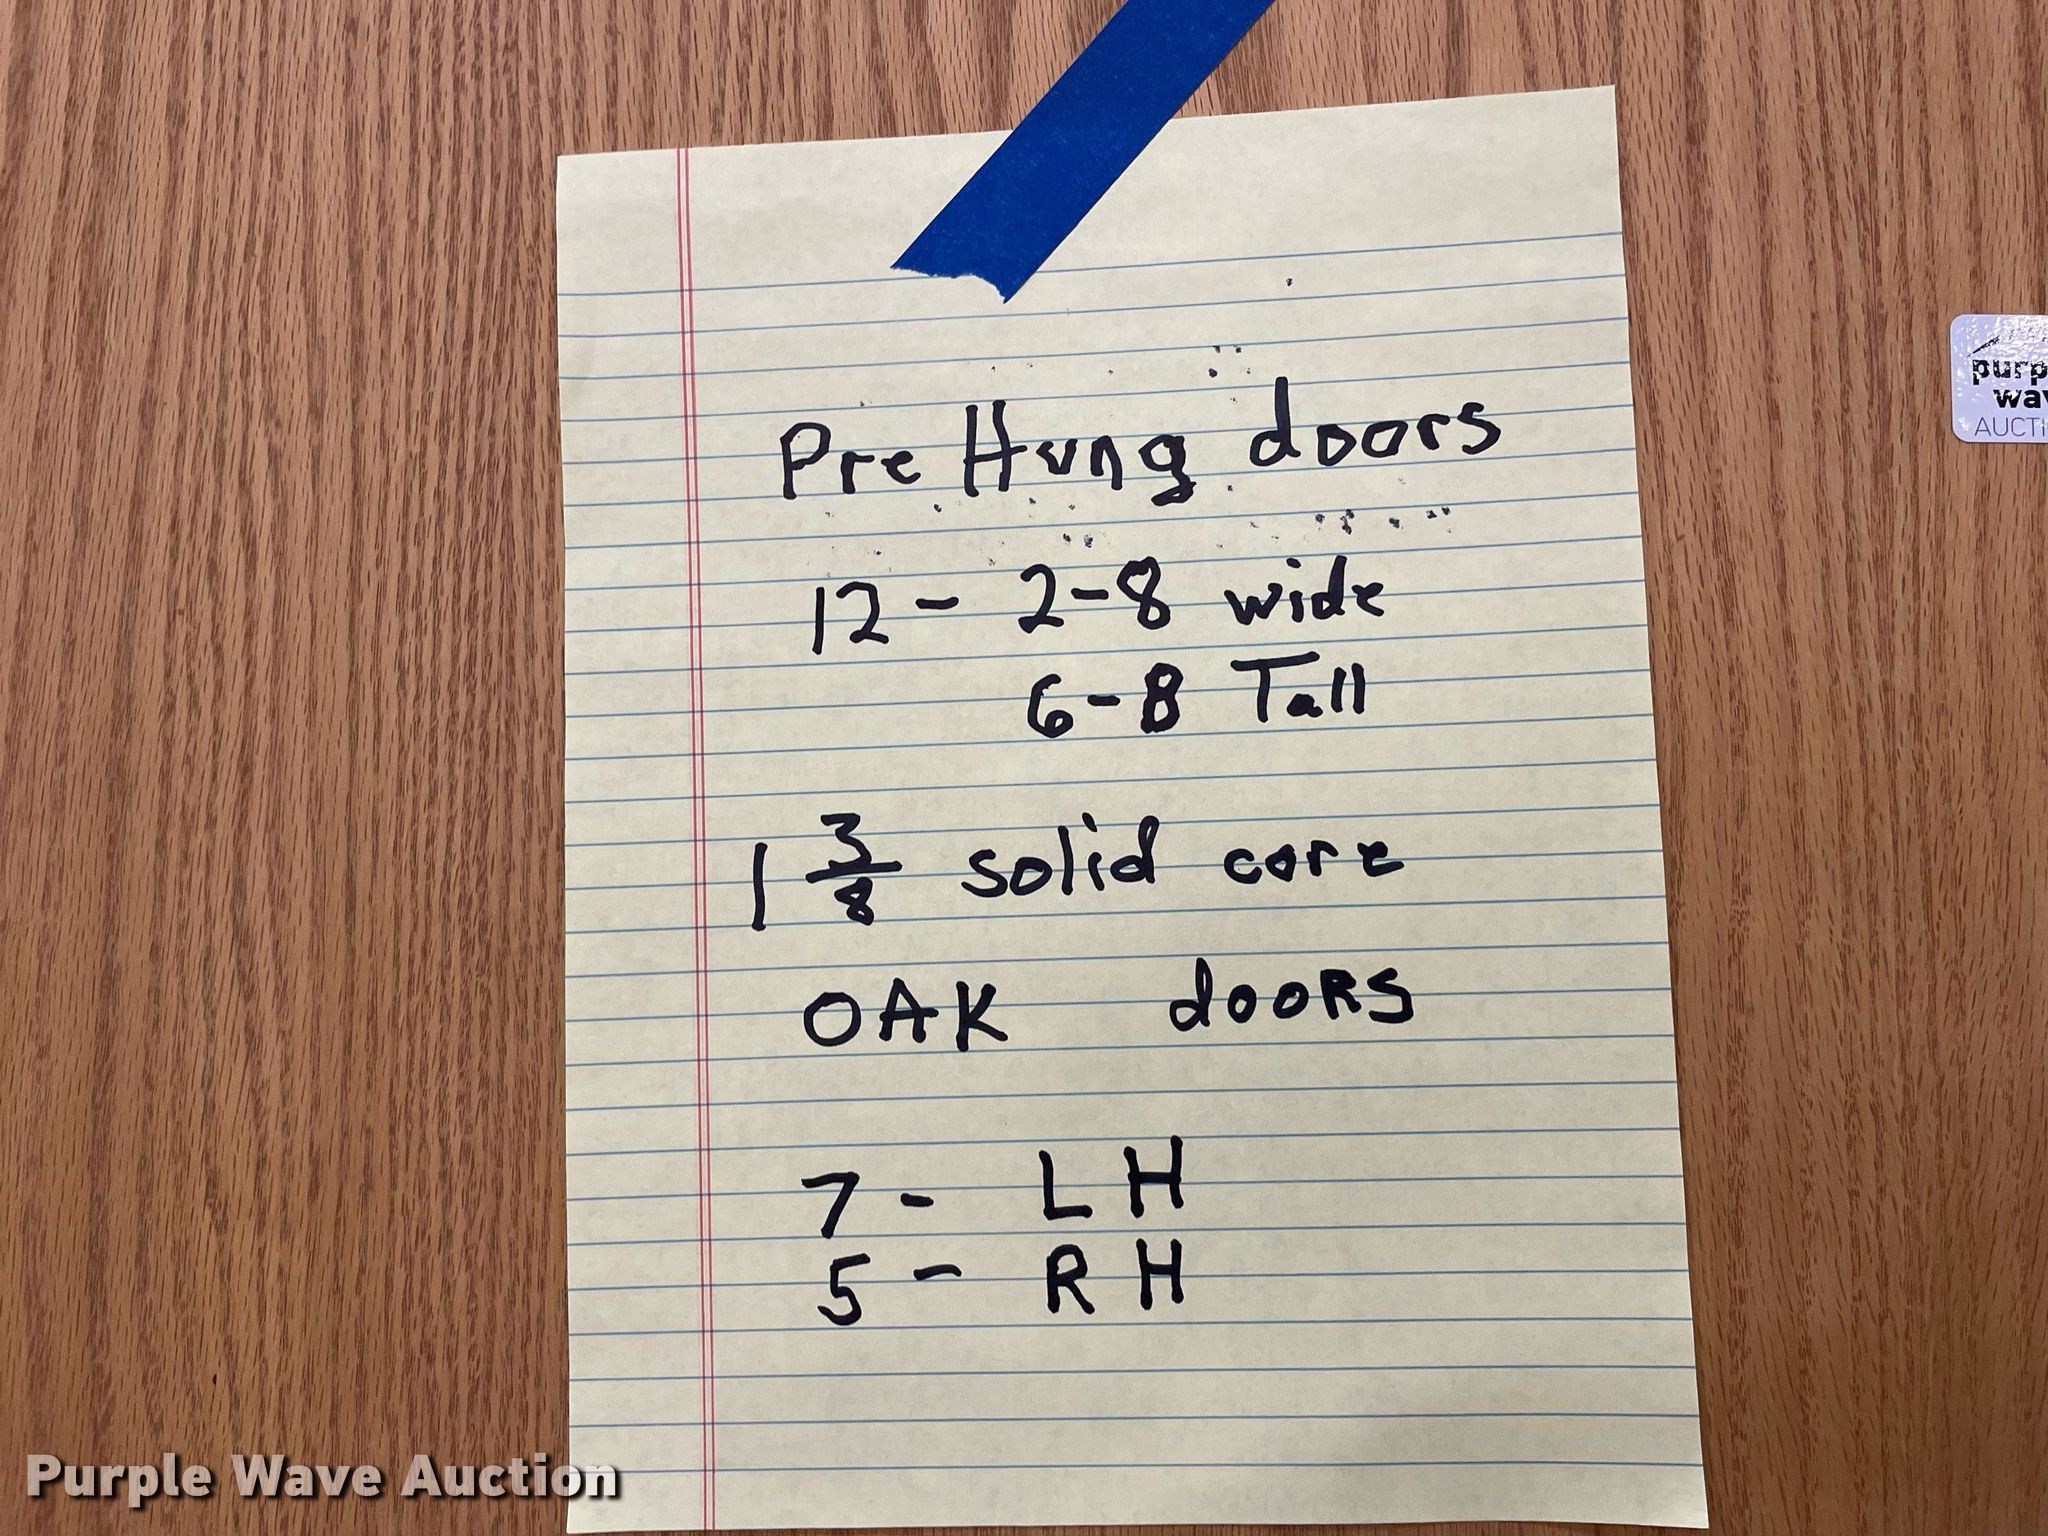 Pre Hung doors
12 - 2-8 wide
6-8 Tall
1 3/8 solid core
OAK doors
7 - LH
5 - RH
purp
wav
AUCTI
Purple Wave Auction